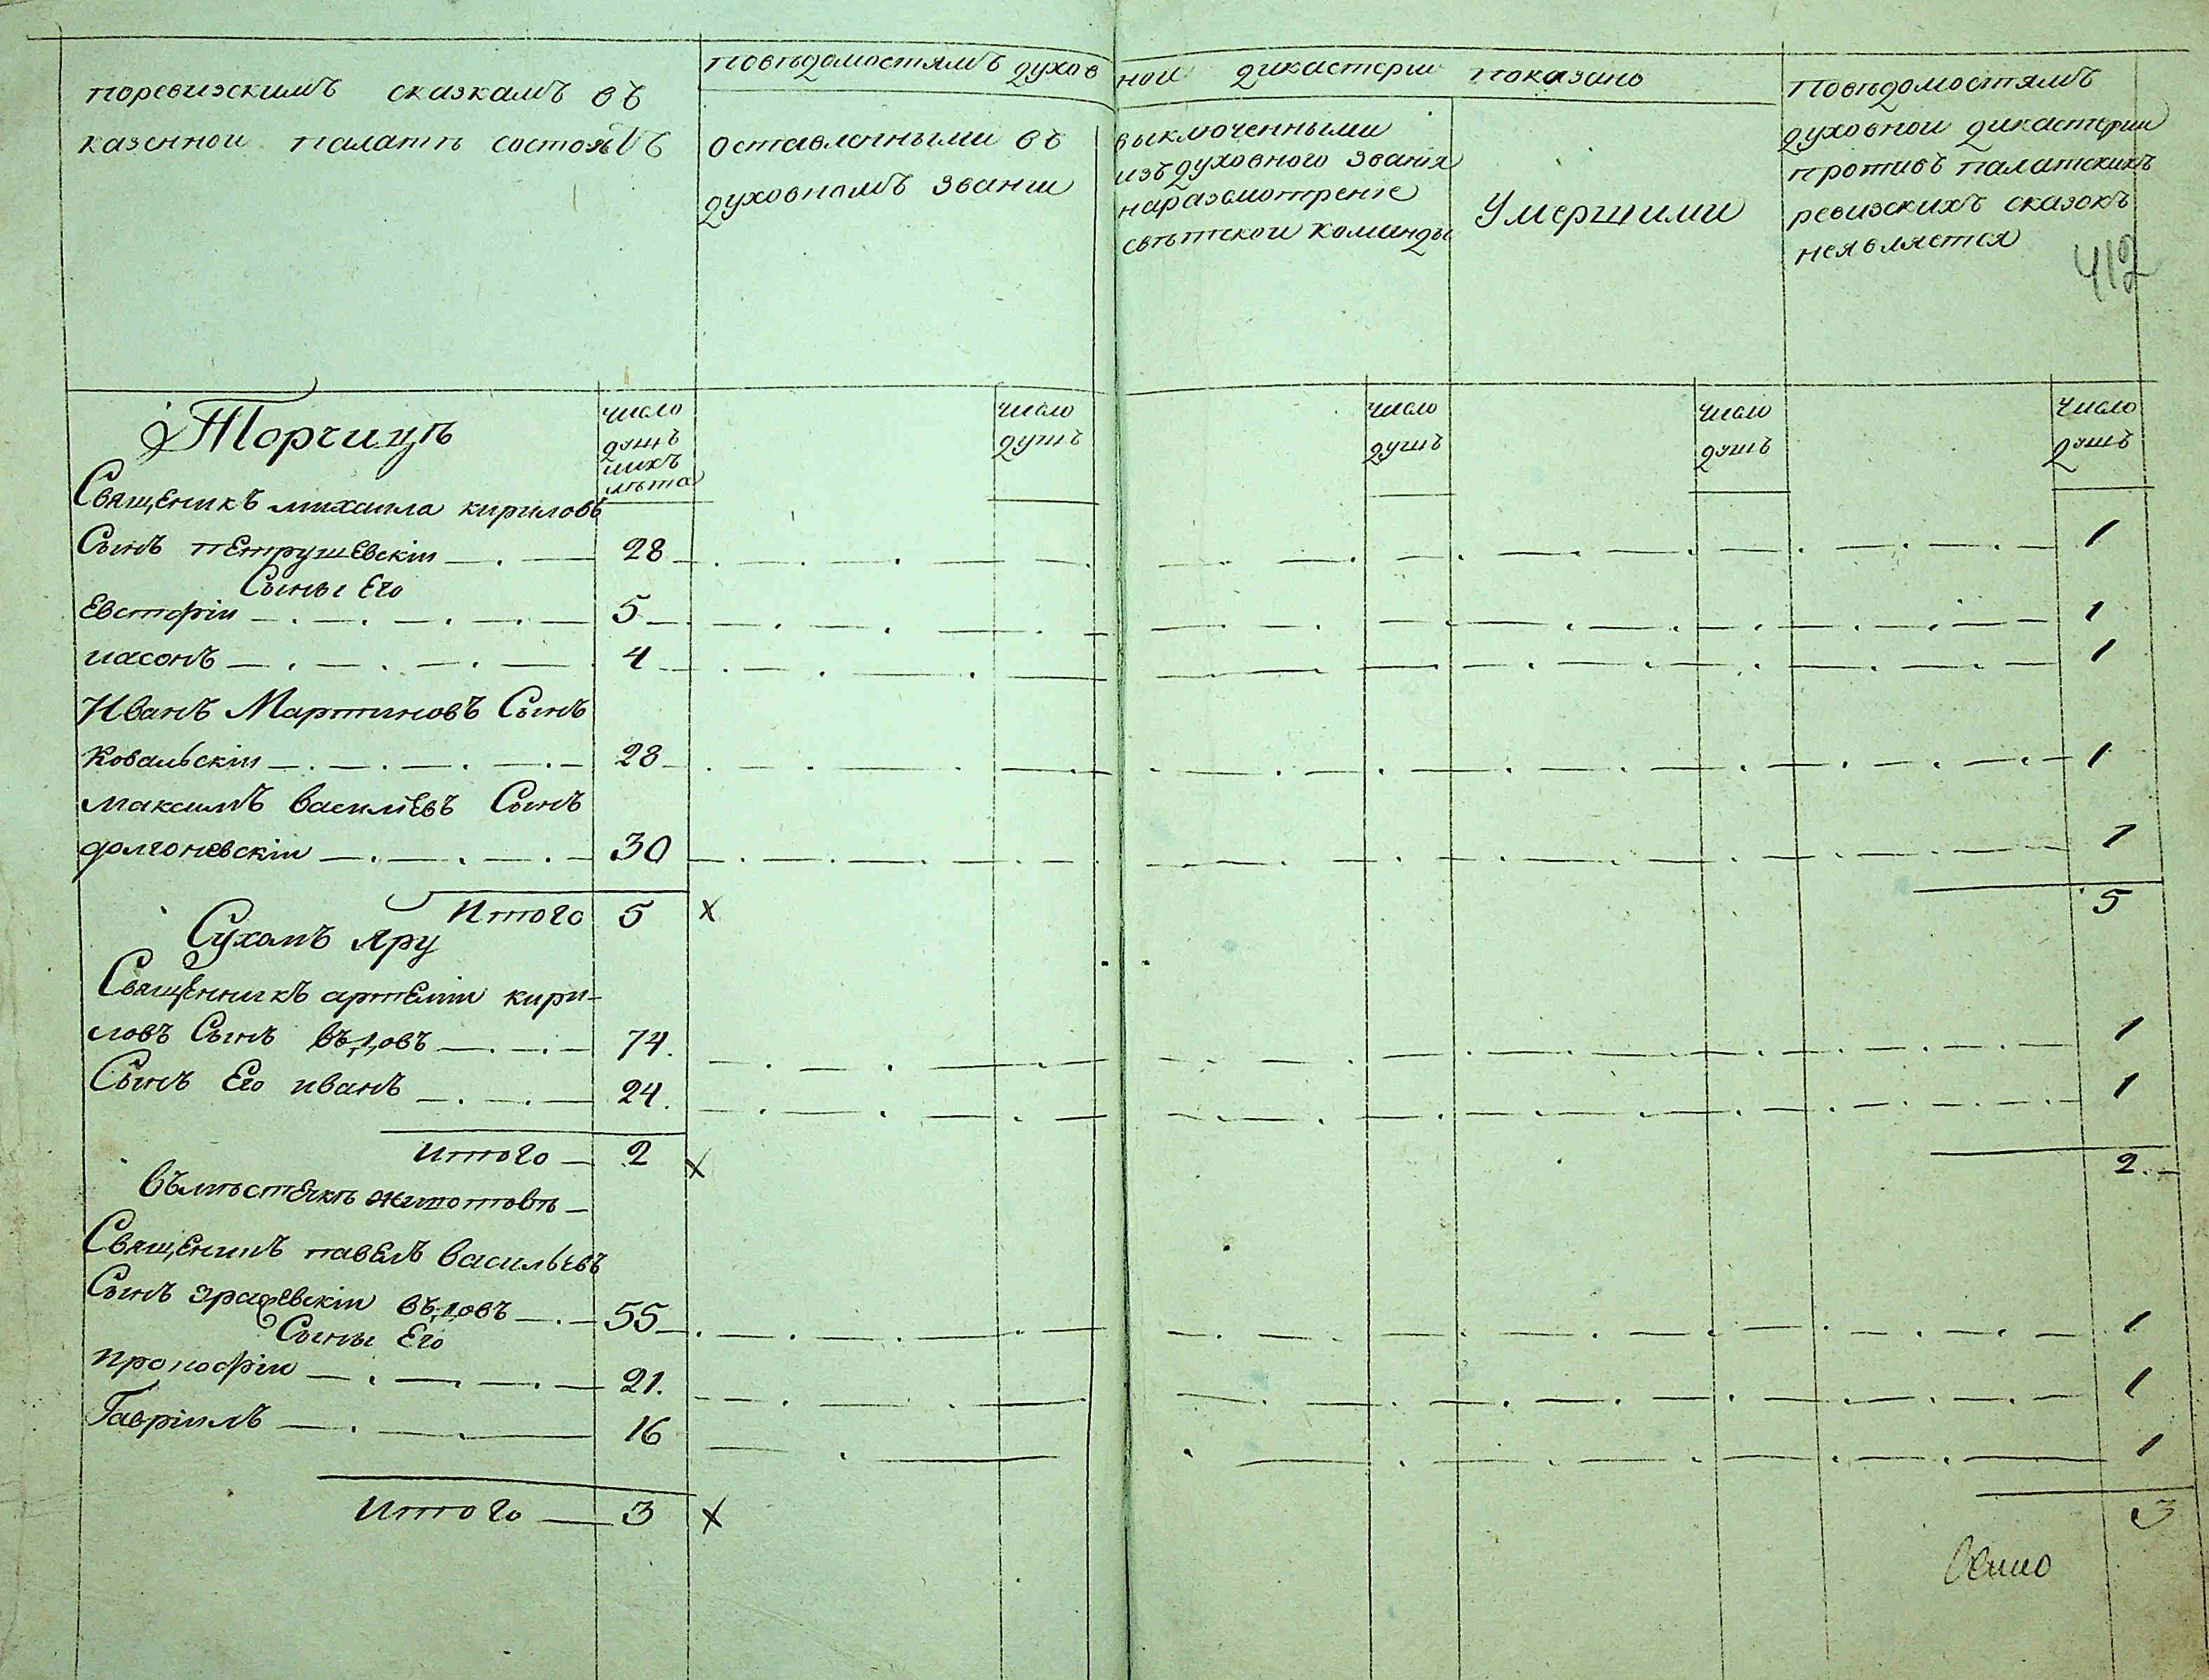 поревизскимъ сказкамъ въ
казенной палатѣ состоялъ
Повѣдомостямъ духов
ной дикастерии показано
оставлѣнными въ
духовномъ звании
выключенными
изъ духовного звания
наразсмотрение
свѣтской команды
Умершими
Повѣдомостямъ
духовной дикастерии
противъ палатскихъ
ревизскихъ сказокъ
неявляется
412
Торчицѣ
число
душъ
ихъ
лѣта
число
душъ
число
душъ
число
душъ
число
душъ
Священикъ михаила кириловъ
Сынъ пЕтрушЕвскіи 28 1
Сыны Его
Евстафіи 5 1
иасонъ 4 1
Иванъ Мартиновъ Сынъ
Ковальскіи 28 1
максимъ василіЕвъ Сынъ
долгоневскіи 30 1
Итого 5 х 5
Сухомъ Яру
СвящЕнникъ артЕміи кири-
ловъ Сынъ въ,довъ 74. 1
Сынъ Его иванъ 24. 1
итого 2 х 2.
Въмѣстечкѣ животовѣ
СвящЕникъ павЕлъ васильевъ
Сынъ въ,довъ 55 1
Сыны Его
прокофіи 21. 1
Гавріилъ 16 1
итого 3 х 3